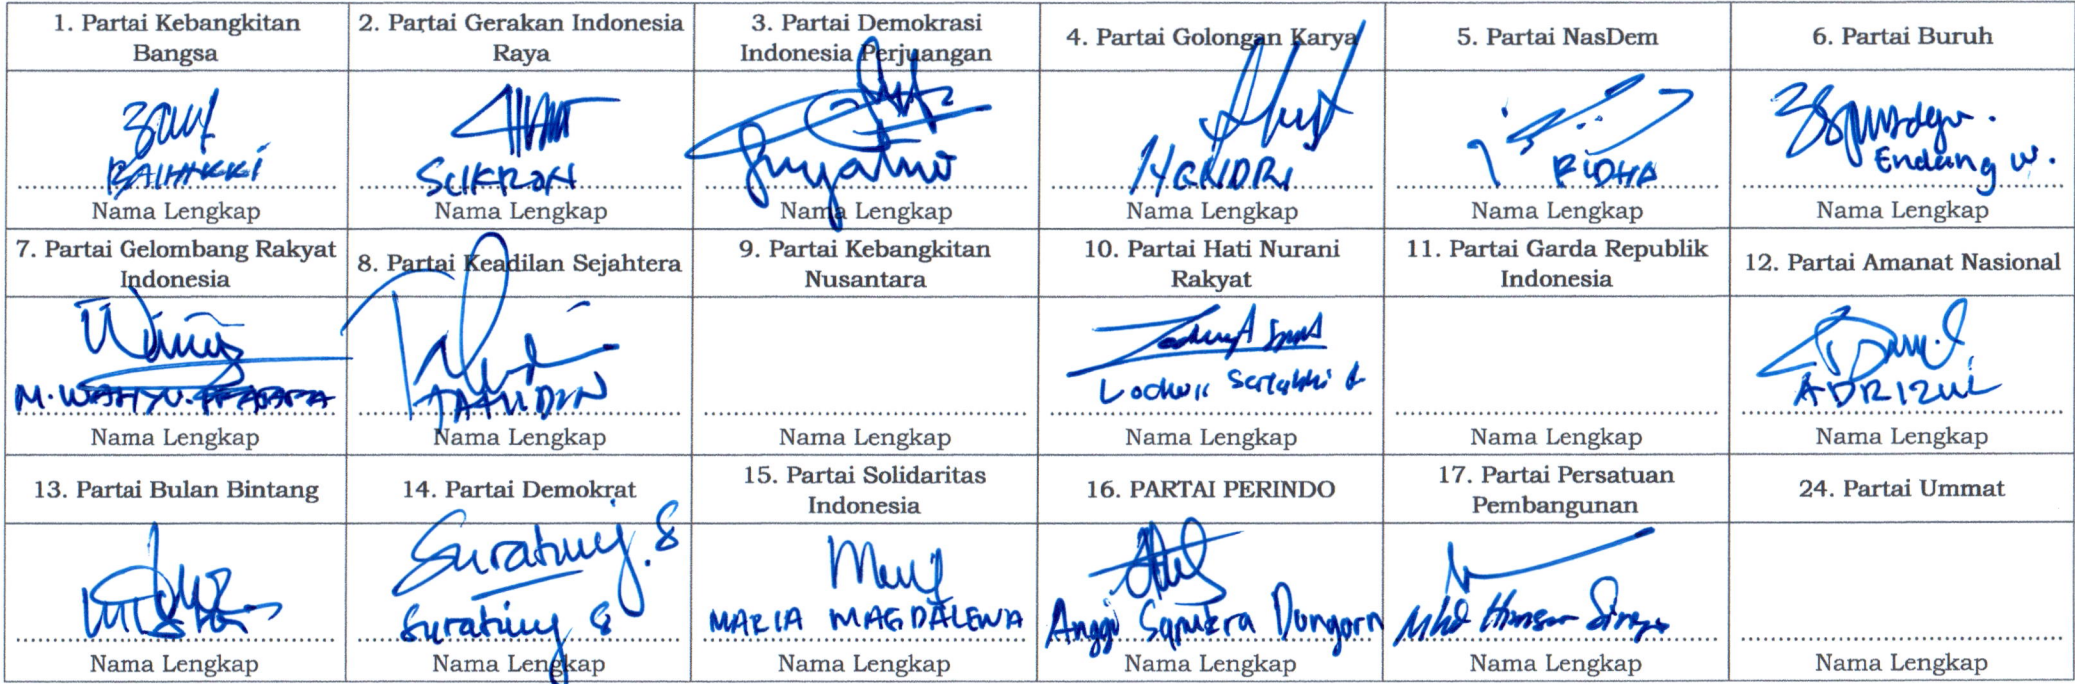 1. Partai Kebangkitan
Bangsa
2. Partai Gerakan Indonesia
Raya
3. Partai Demokrasi
Indonesia Perjuangan
4. Partai Golongan Karya
5. Partai NasDem
6. Partai Buruh
BAIHAKKI
SUKRON
Suyatno
RIDHA
Endang W.
Nama Lengkap
Nama Lengkap
Nama Lengkap
Nama Lengkap
Nama Lengkap
Nama Lengkap
7. Partai Gelombang Rakyat
Indonesia
8. Partai Keadilan Sejahtera
9. Partai Kebangkitan
Nusantara
10. Partai Hati Nurani
Rakyat
11. Partai Garda Republik
Indonesia
12. Partai Amanat Nasional
M. WAHYU
ADRIZUL
Nama Lengkap
Nama Lengkap
Nama Lengkap
Nama Lengkap
Nama Lengkap
Nama Lengkap
13. Partai Bulan Bintang
14. Partai Demokrat
15. Partai Solidaritas
Indonesia
16. PARTAI PERINDO
17. Partai Persatuan
Pembangunan
24. Partai Ummat
MARIA MAGDALENA
Anggi
Nama Lengkap
Nama Lengkap
Nama Lengkap
Nama Lengkap
Nama Lengkap
Nama Lengkap